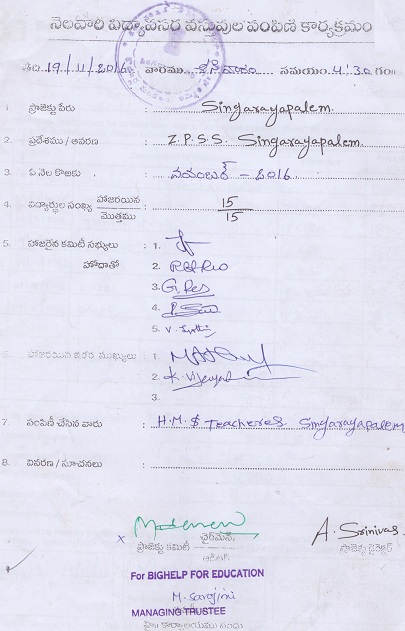 నెలవారి విద్యావసర వస్తువుల పంపిణి కార్యక్రమం
తేది 19/11/2016 వారము శనివారం సమయం 4:30 గం॥
1. ప్రాజెక్టు పేరు : Singarayapalem.
2. ప్రదేశము / ఆవరణ : Z.P.S.S. Singarayapalem
3. ఏ నెల కొఱకు : నవంబర్ - 2016
4. విద్యార్థుల సంఖ్య హాజరయిన / మొత్తము : 15 / 15
5. హాజరైన కమిటీ సభ్యులు : 1.
హోదాతో 2.
3.
4.
5. V.
6. హాజరయిన ఇతర ముఖ్యులు : 1.
2. K. Vijaya
3.
7. పంపిణీ చేసిన వారు : H.M. $ Teacheres Singarayapalem
8. వివరణ / సూచనలు :
A. Srinivas
ప్రాజెక్టు కమిటీ ఛైర్మెన్ ప్రాజెక్టు డైరెక్టర్
ఆడిటర్
For BIGHELP FOR EDUCATION
M. Sarojini
MANAGING TRUSTEE